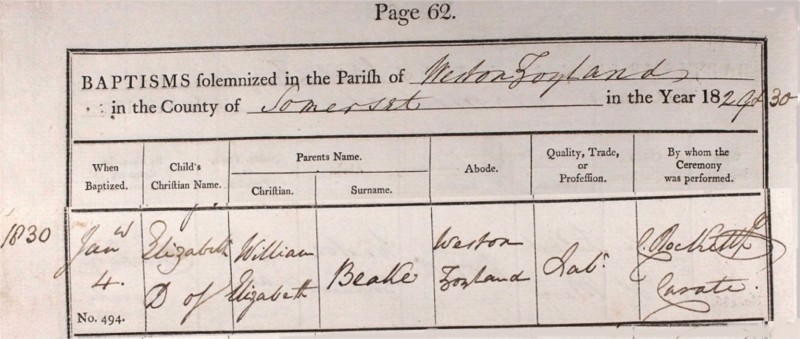 Page 62.
BAPTISMS solemnized in the Parish of Weston Zoyland
in the County of Somerset in the Year 1829 & 30
When Baptized. Child's Christian Name. Parents Name. Christian. Surname. Abode. Quality, Trade, or Profession. By whom the Ceremony was performed.
1830
Janʸ 4. Elizabeth D of William Elizabeth Beake Weston Zoyland Labʳ Curate.
No. 494.